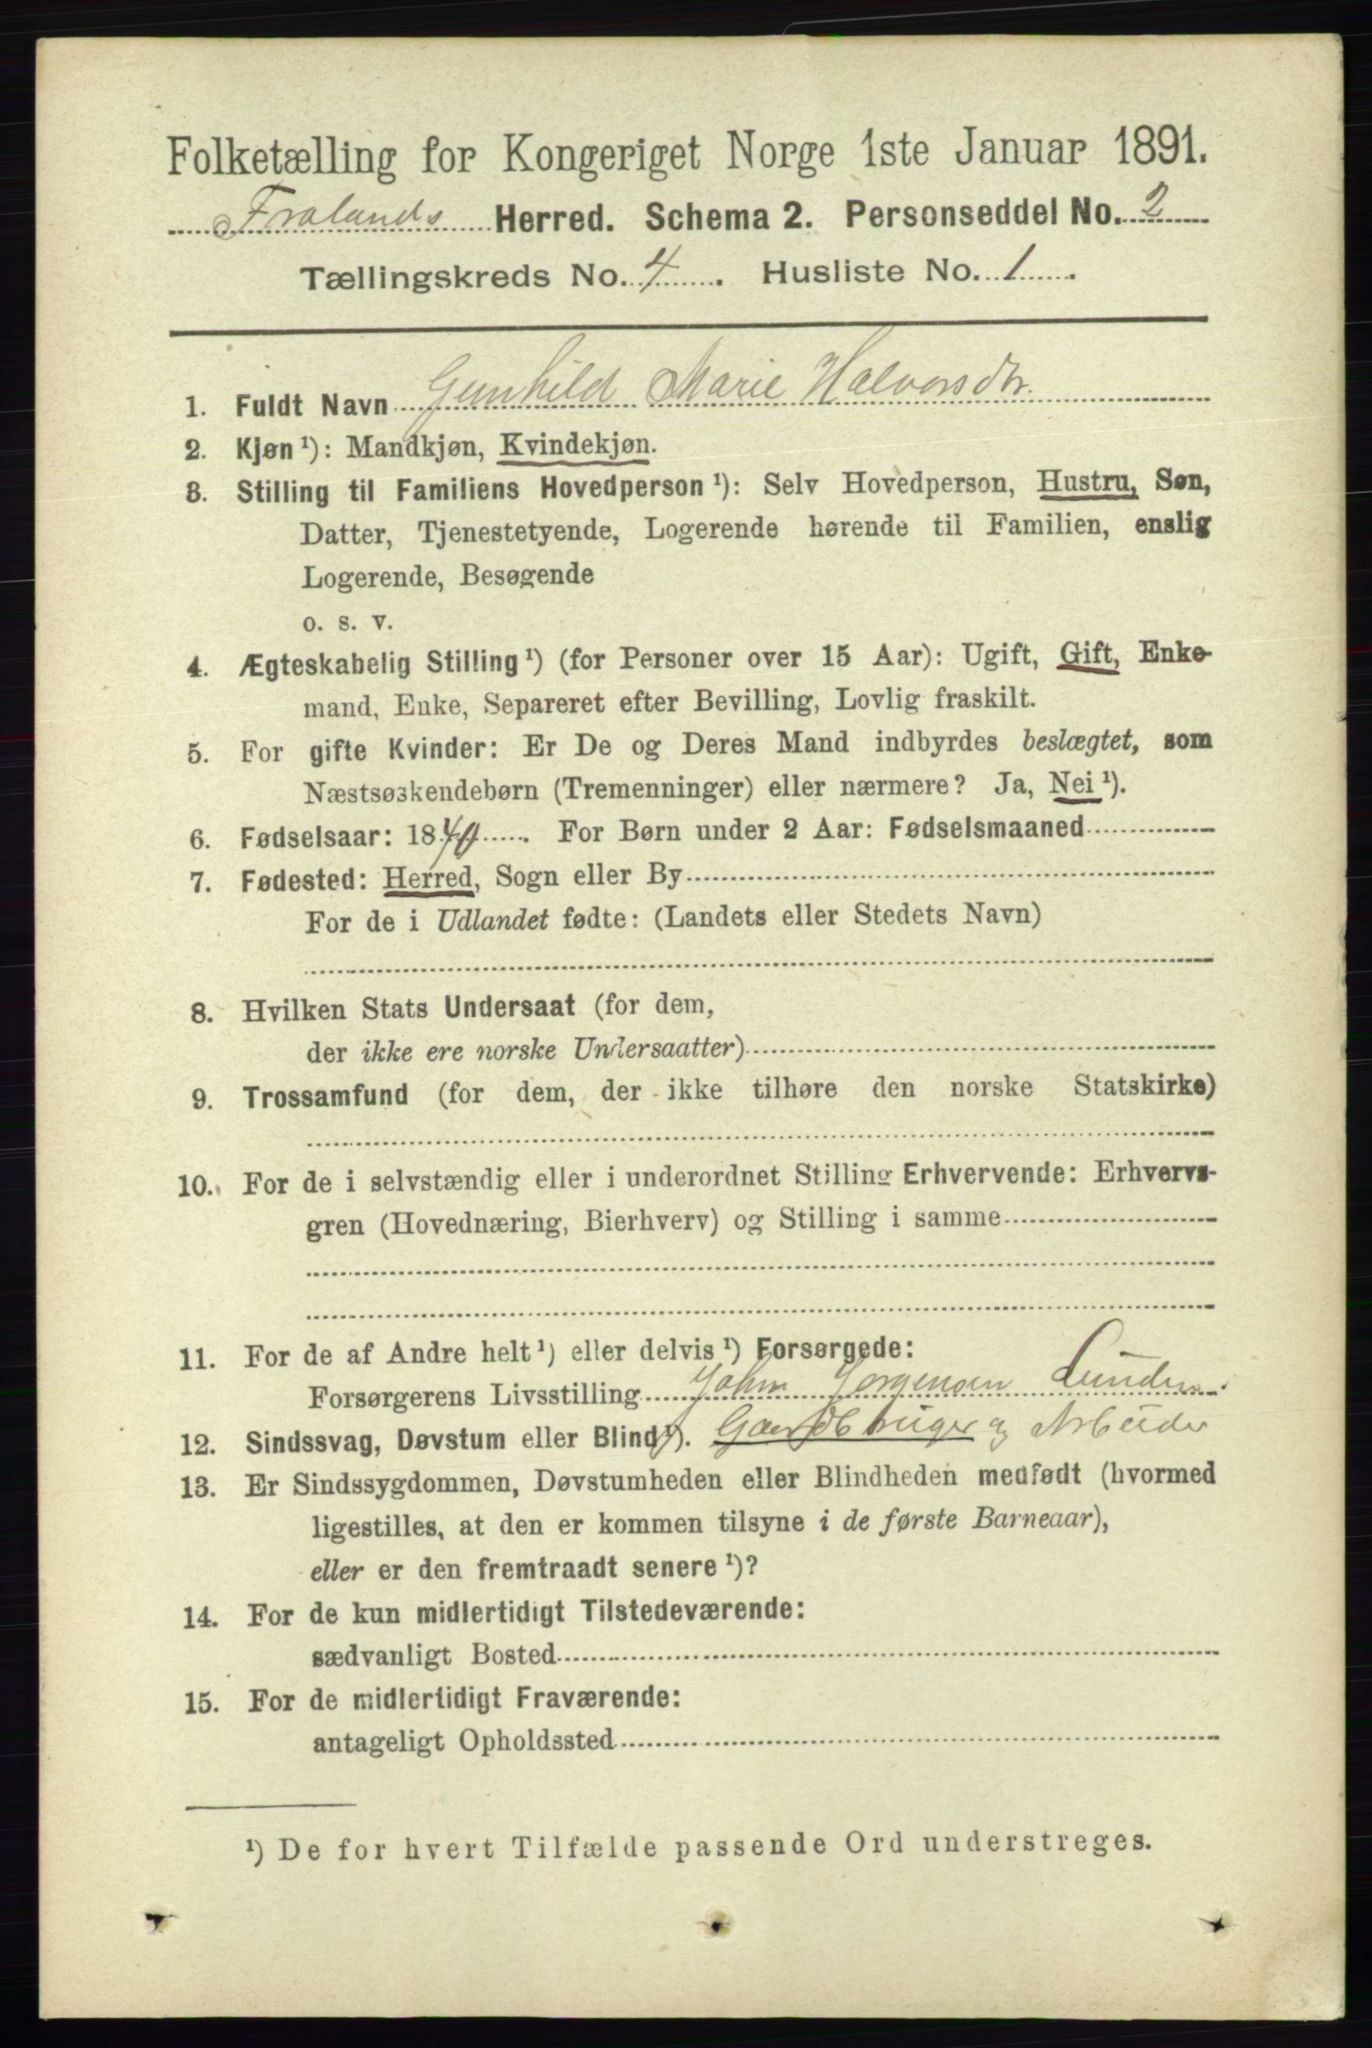 Folketælling for Kongeriget Norge 1ste Januar 1891.
Frolands Herred. Schema 2. Personseddel No. 2
Tællingskreds No. 4. Husliste No. 1.
1. Fuldt Navn Gunhild Marie Halvorsdtr.
2. Kjøn ¹): Mandkjøn, Kvindekjøn.
3. Stilling til Familiens Hovedperson ¹): Selv Hovedperson, Hustru, Søn,
Datter, Tjenestetyende, Logerende hørende til Familien, enslig
Logerende, Besøgende
o. s. v.
4. Ægteskabelig Stilling ¹) (for Personer over 15 Aar): Ugift, Gift, Enke-
mand, Enke, Separeret efter Bevilling, Lovlig fraskilt.
5. For gifte Kvinder: Er De og Deres Mand indbyrdes beslægtet, som
Næstsøskendebørn (Tremenninger) eller nærmere? Ja, Nei ¹).
6. Fødselsaar: 1840. For Børn under 2 Aar: Fødselsmaaned
7. Fødested: Herred, Sogn eller By
For de i Udlandet fødte: (Landets eller Stedets Navn)
8. Hvilken Stats Undersaat (for dem,
der ikke ere norske Undersaatter)
9. Trossamfund (for dem, der ikke tilhøre den norske Statskirke)
10. For de i selvstændig eller i underordnet Stilling Erhvervende: Erhvervs-
gren (Hovednæring, Bierhverv) og Stilling i samme
11. For de af Andre helt ¹) eller delvis ¹) Forsørgede:
Forsørgerens Livsstilling John Jørgensen Lunden.
12. Sindssvag, Døvstum eller Blind ¹). Gaardbruger og Arbeider
13. Er Sindssygdommen, Døvstumheden eller Blindheden medfødt (hvormed
ligestilles, at den er kommen tilsyne i de første Barneaar),
eller er den fremtraadt senere ¹)?
14. For de kun midlertidigt Tilstedeværende:
sædvanligt Bosted
15. For de midlertidigt Fraværende:
antageligt Opholdssted
¹) De for hvert Tilfælde passende Ord understreges.